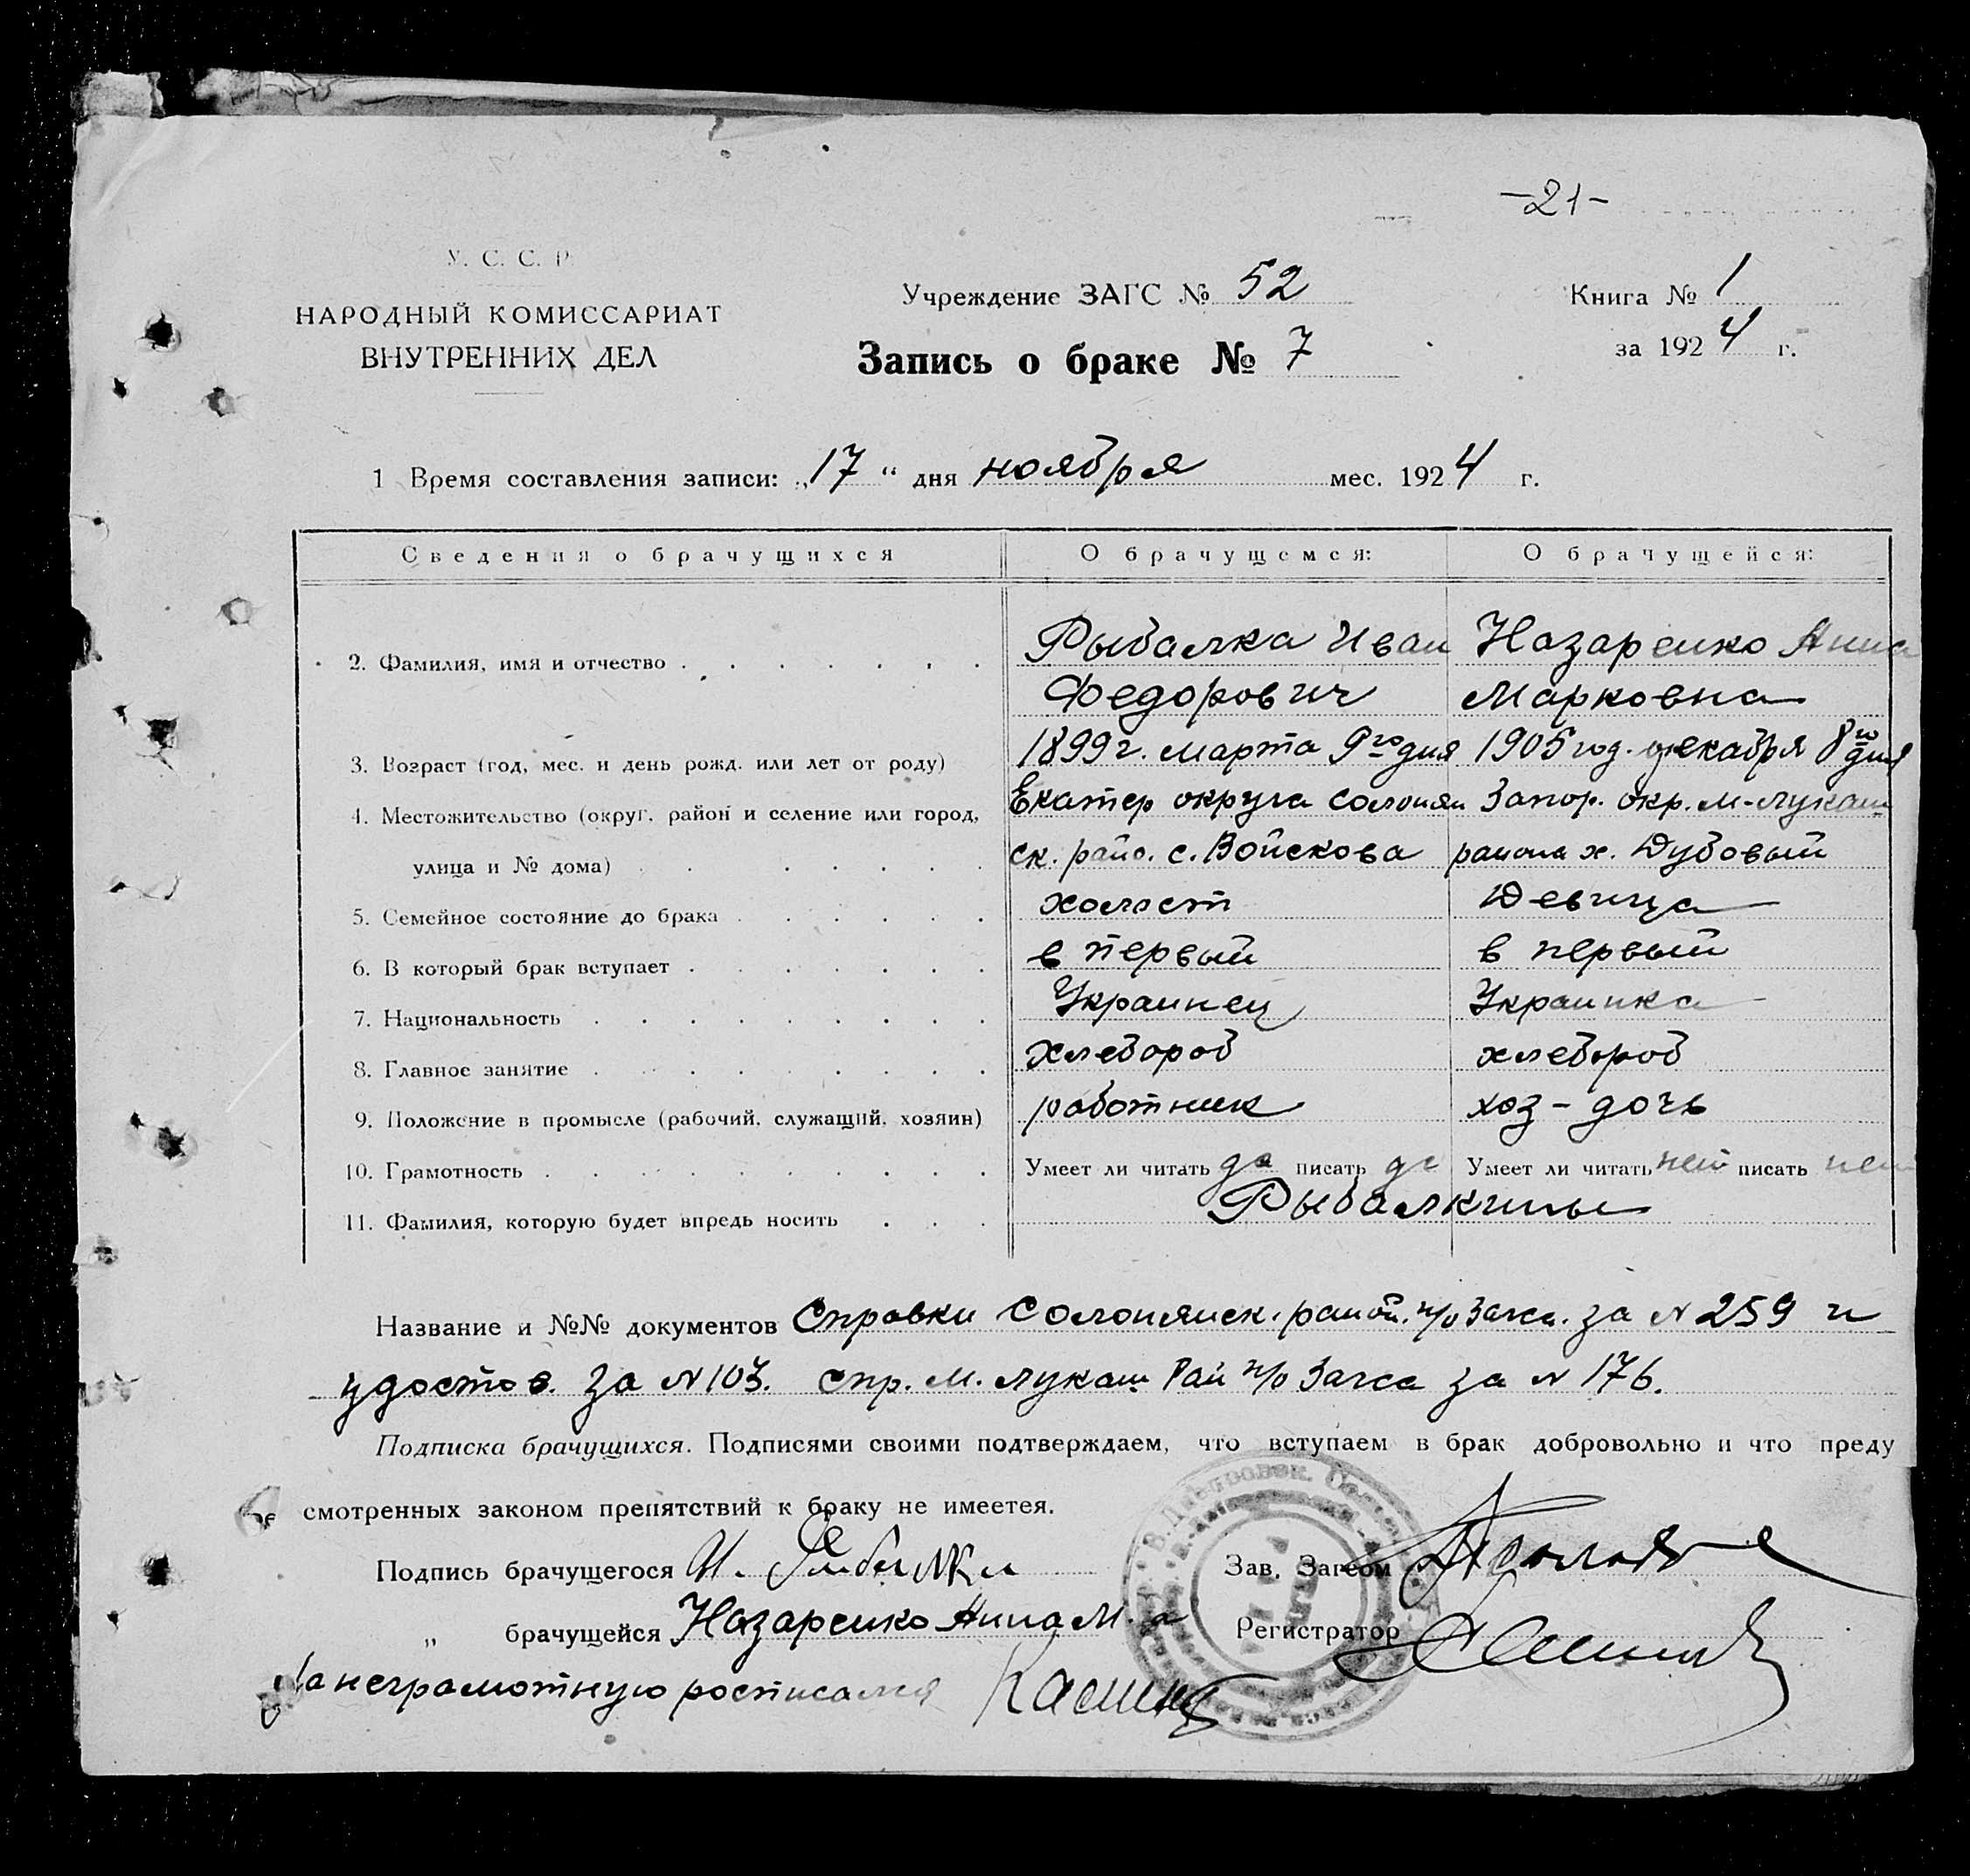 -21-
У. С. С. Р.
НАРОДНЫЙ КОМИССАРИАТ
ВНУТРЕННИХ ДЕЛ
Учреждение ЗАГС № 52
Книга № 1
Запись о браке № 7
за 1924 г.
1 Время составления записи: „17“ дня ноября мес. 1924 г.
Сведения о брачущихся О брачущемся: О брачущейся:
2. Фамилия, имя и отчество Рыбалка Иван Назаренко Анна
Федорович Марковна
3. Возраст (год, мес. и день рожд. или лет от роду) 1899 г. марта 9го дня 1905 год. декабря 8го дня
4. Местожительство (округ, район и селение или город, Екатер округа Солонян Запор. окр. М-Лукаш
улица и № дома) ск. райо. с. Войскова района х. Дубовый
5. Семейное состояние до брака холост Девица
6. В который брак вступает в первый в первый
7. Национальность Украинец Украинка
8. Главное занятие хлебороб хлебороб
9. Положение в промысле (рабочий, служащий, хозяин) работник хоз-дочь
10. Грамотность Умеет ли читать да писать да Умеет ли читать нет писать нет
11. Фамилия, которую будет впредь носить Рыбалкины
Название и №№ документов Справки Солонянск. район. п/о Загса. за N 259 и
удостов. за N 103. спр. М. Лукаш Рай п/о Загса за N 176.
Подписка брачущихся. Подписями своими подтверждаем, что вступаем в брак добровольно и что преду
смотренных законом препятствий к браку не имеетея.
Подпись брачущегося И. Рибалка Зав. Загсом
„ брачущейся Назаренко Анна М. а Регистратор
За неграмотную росписался